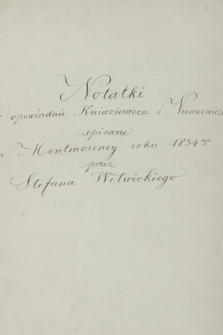 Notatki
z opowiadań Kniaziewicza i Niemcewicza
spisane
w Montmorency roku 1834 r
przez
Stefana Witwickiego